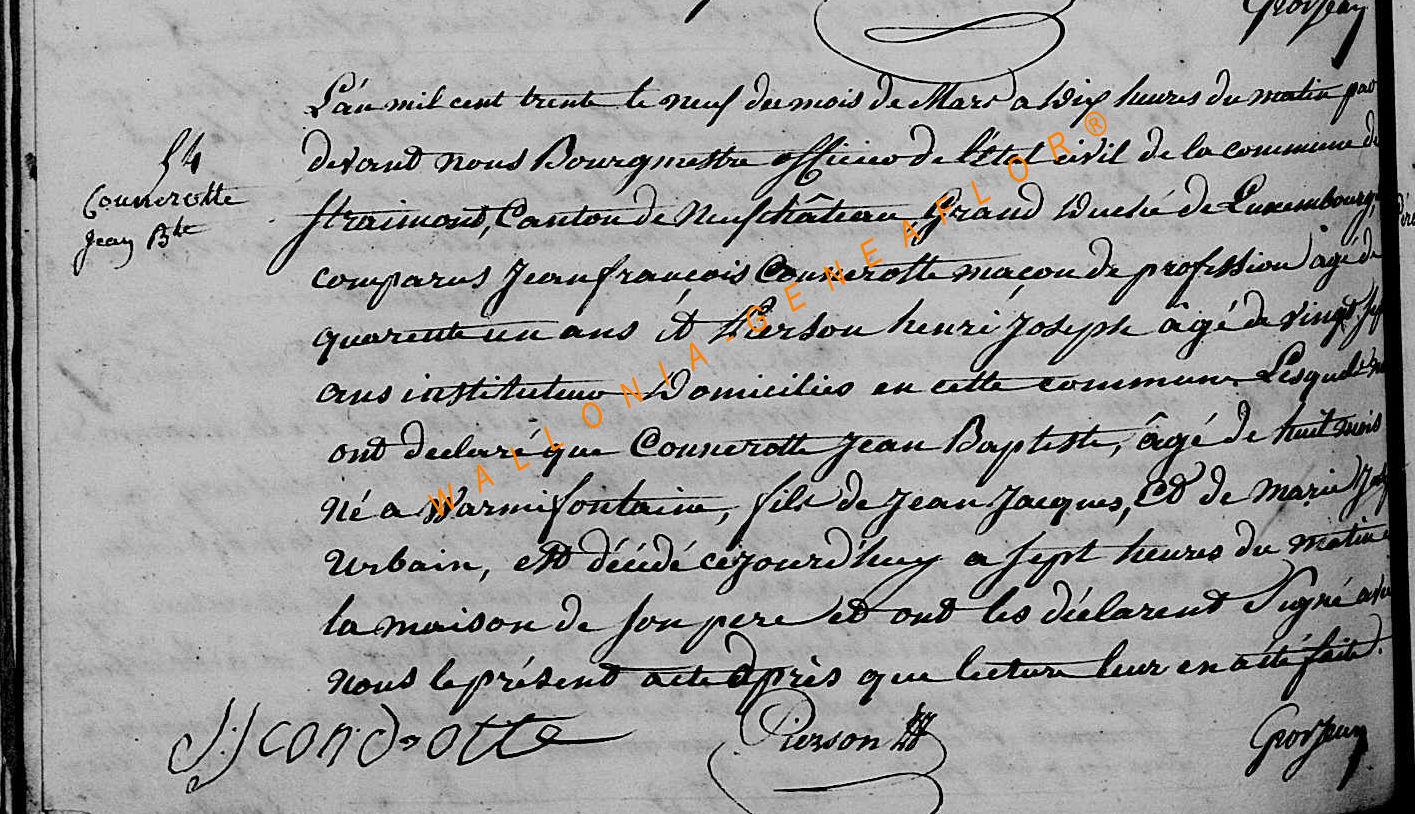 Grosjean
L'an mil cent trente le neuf du mois de Mars a dix heures du matin par
devant nous Bourgmestre officier de l'état civil de la commune de
Straimont, Canton de Neufchâteau, Grand Duché de Luxembourg,
54
Connerotte
Jean Bte
comparus Jean françois Connerotte maçon de profession âgé de
quarente un ans et Pierson henri Joseph âgé de vingt sept
ans instituteur Domiciliés en cette commune. Lesquels
ont declaré que Connerotte Jean Baptiste, âgé de huit mois
né a Warmifontaine, fils de Jean Jacques, Et de Marie
Urbain, est décédé cejourd'huy a sept heures du matin
la maison de son pere et ont les déclarent Signé avec
nous le présent acte après que lecture leur en a été faite.
Pierson
Grosjean
WALLONIA-GENEAFLOR®